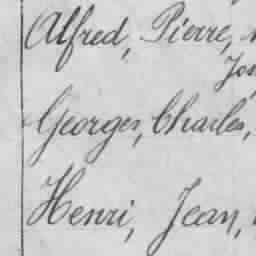 Alfred, Pierre,
Georges, Charles,
Henri, Jean,